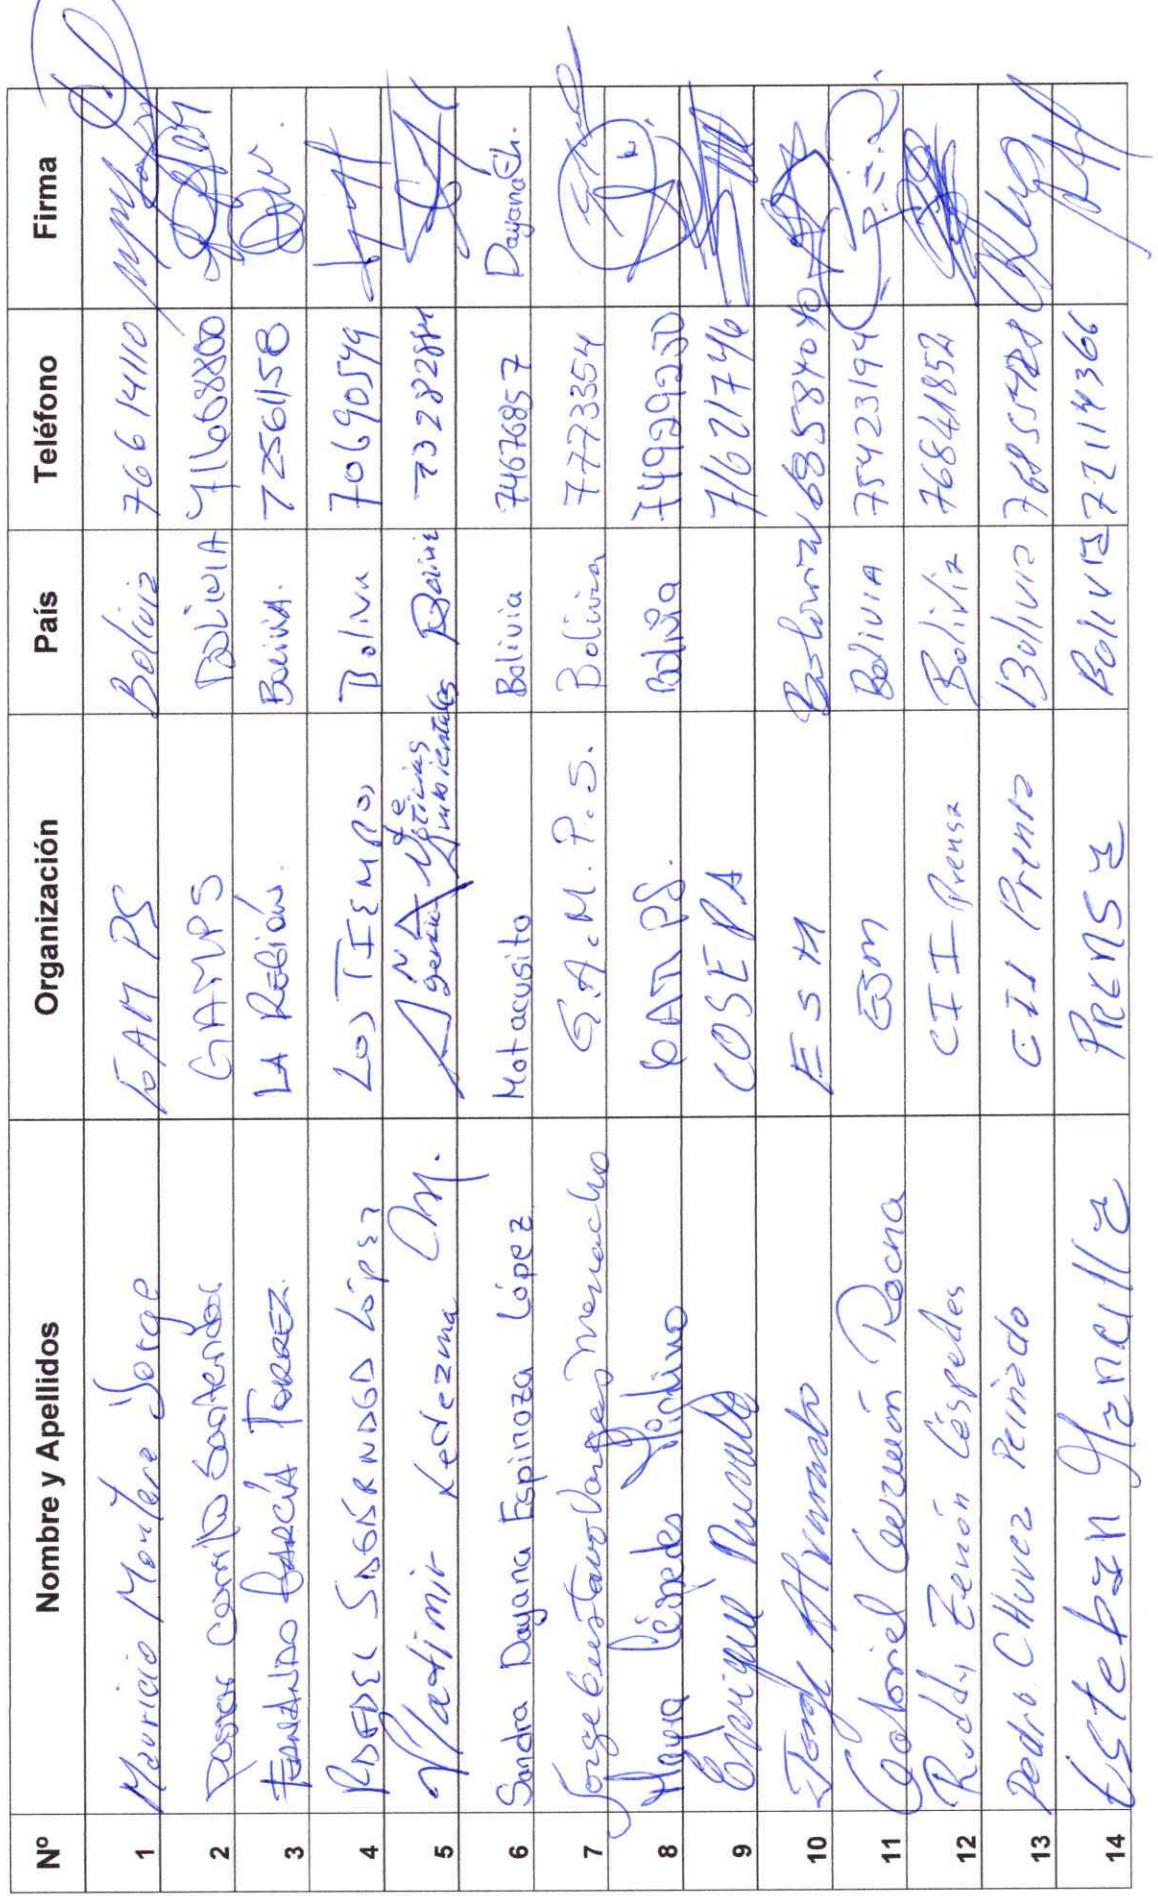 Nº Nombre y Apellidos Organización País Teléfono Firma
1 Mauricio Montero Jorge GAMPS Bolivia 76614110
2 Carrillo GAMPS BOLIVIA 71668800
3 FERNANDO GARCÍA TORREZ. LA REGIÓN. BOLIVIA. 72561158
4 SANDOVAL LÓPEZ LOS TIEMPOS Bolivia 70690549
5 Vladimir Ledezma M. Agencia de Noticias Ambientales Bolivia
6 Sandra Dayana Espinoza López Motacusito Bolivia 74676857 Dayana
7 Jorge Gustavo Vargas Menacho G.A.M.P.S. Bolivia 7773354
8 Mayra Céspedes GAMPS. Bolivia 74929250
9 Enrique COSEPA 71621746
10 Jorge ESM 68584040
11 Gabriel Rocha ESM BOLIVIA 75423194
12 Ruddy Zenón Céspedes CII Prensa Bolivia 76841852
13 Pedro CHuvez Peinado CII Prensa Bolivia 76855428
14 Esteban Mancilla PRENSA BOLIVIA 72114366